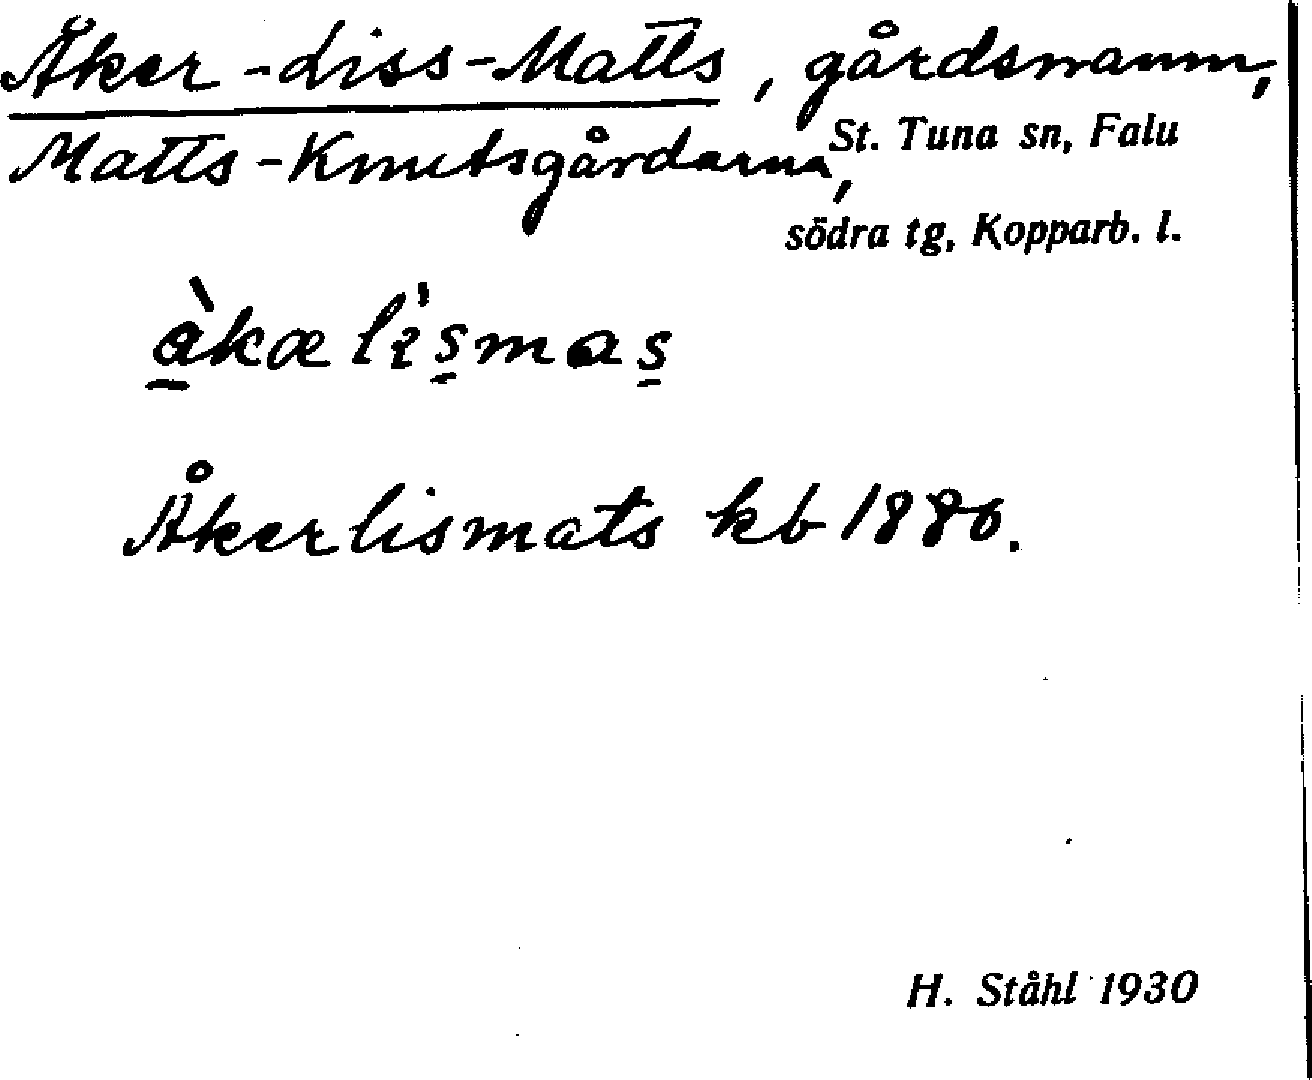 Åker-Liss-Matts, gårdsnamn,
Matts-Knutsgårdarna, St. Tuna sn, Falu
södra tg, Kopparb. l.
Åkerlismats kb 1880.
H. Ståhl 1930